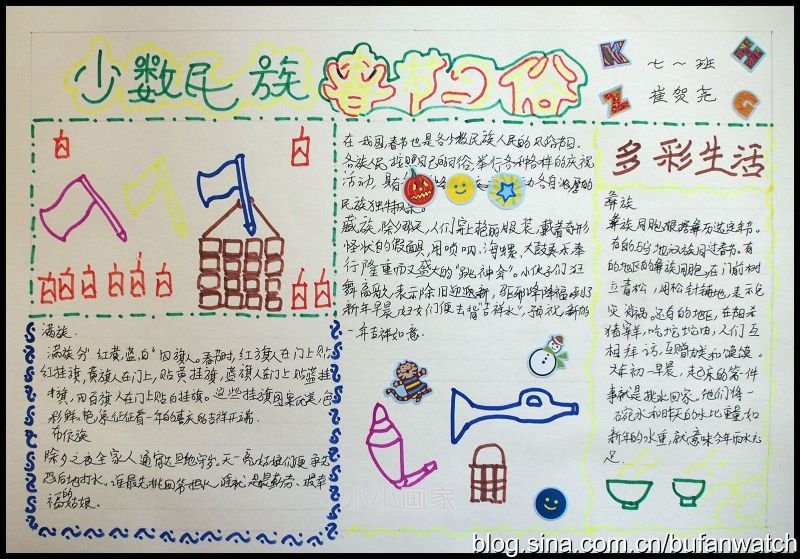 少数民族春节习俗
七〜班
崔贺尧
K
H
Z
G
在我国,春节也是各少数民族人民的风俗节日。
各族人民按照自己的习俗,举行各种各样的庆祝
活动,
各自浓厚的
民族独特风味。
藏族,除夕那天,人们穿上艳丽服装,戴着奇形
怪状的假面具,用唢呐、海螺、大鼓奏乐举
行隆重而又盛大的“跳神会”。小伙子们狂
舞高歌,表示除旧迎新,驱邪降福,到了
新年早晨,妇女们便去背“吉祥水”,预祝新的
一年吉祥如意.
多彩生活
彝族
有的与当地汉族同过春节。有
的地区的彝族同胞,在门前树
立青松,用松针铺地,表示免
灾消祸。还有的地区,在初
猪宰鲜,吃坨坨肉,人们互
相拜访,互赠
大年初一早晨,起床的第一件
事就是挑水回家,他们将一
碗水和昨天的水比重量,如
新年的水重,就意味今年雨水充
足.
满族.
满族分“红、黄、蓝、白”四旗人。春节时,红旗人在门上贴
红挂旗,黄旗人在门上贴黄挂旗,蓝旗人在门上贴蓝挂
旗,而白旗人在门上贴白挂旗。这些挂旗图案优美,色
彩鲜艳,象征着一年的喜庆吉祥开端.
布依族
除夕之夜全家人通宵达旦地守岁.天一亮,姑娘们便争先
恐后地打水.谁最先挑回第一担水,谁就是最勤劳、最幸
福的姑娘.
小小画家
blog.sina.com.cn/bufanwatch